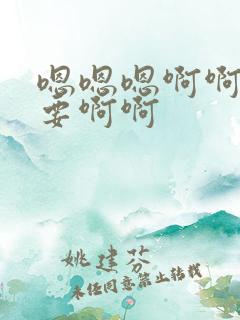 嗯嗯嗯啊啊
要啊啊
姚建芬
未经同意禁止转载